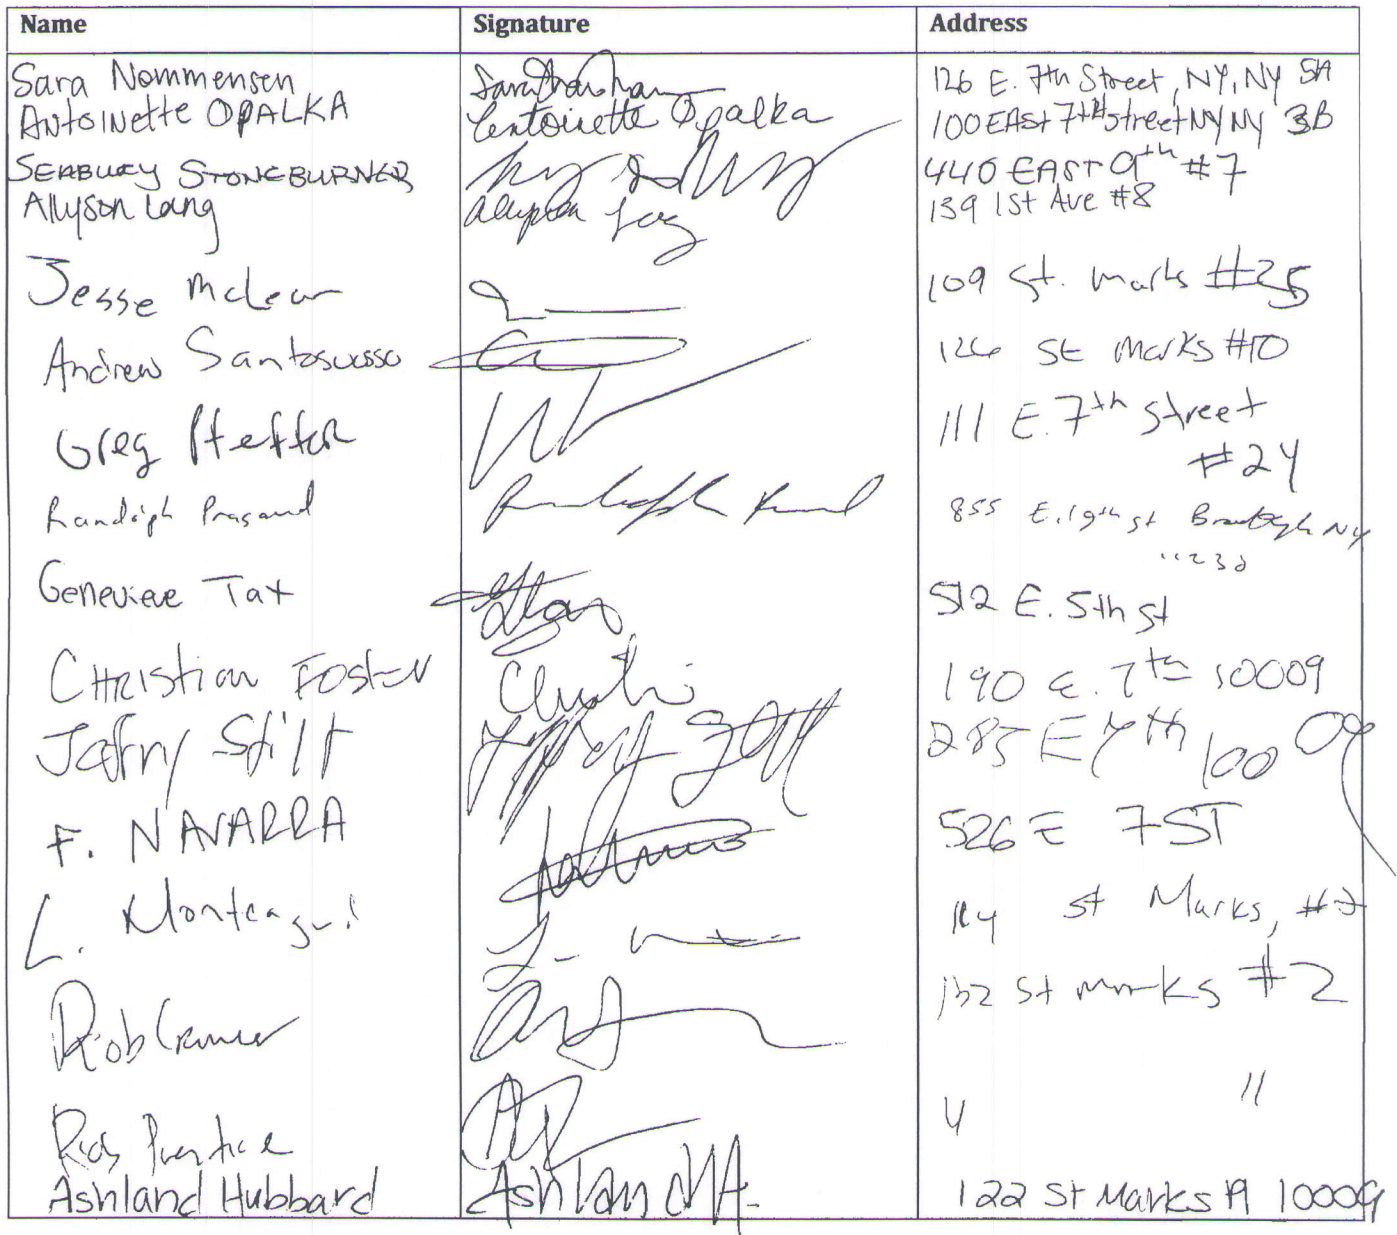 Name Signature Address
Sara Nommensen 126 E. 7th Street, NY, NY 5A
Antoinette OPALKA Antoinette Opalka 100 EAST 7th Street NY NY 3B
SEABURY STONEBURNER 440 EAST 9th #7
Allyson Lang Allyson Lang 139 1st Ave #8
Jesse McLear 109 St. Marks #25
Andrew Santosuosso 126 St Marks #10
Greg Pfeffer 111 E. 7th Street
#24
Randolph Prasaud Randolph 855 E. 19th st Brooklyn NY
11230
Genevieve Tax 512 E. 5th St
CHRISTIAN FOSTER 190 E. 7th 10009
Stilt 285 E 7th 10009
F. NAVARRA 526 E 7 ST
L. St Marks,
Rob Cramer 132 St Marks #2
Prentice "
Ashland Hubbard Ashland H. 122 St Marks 10009